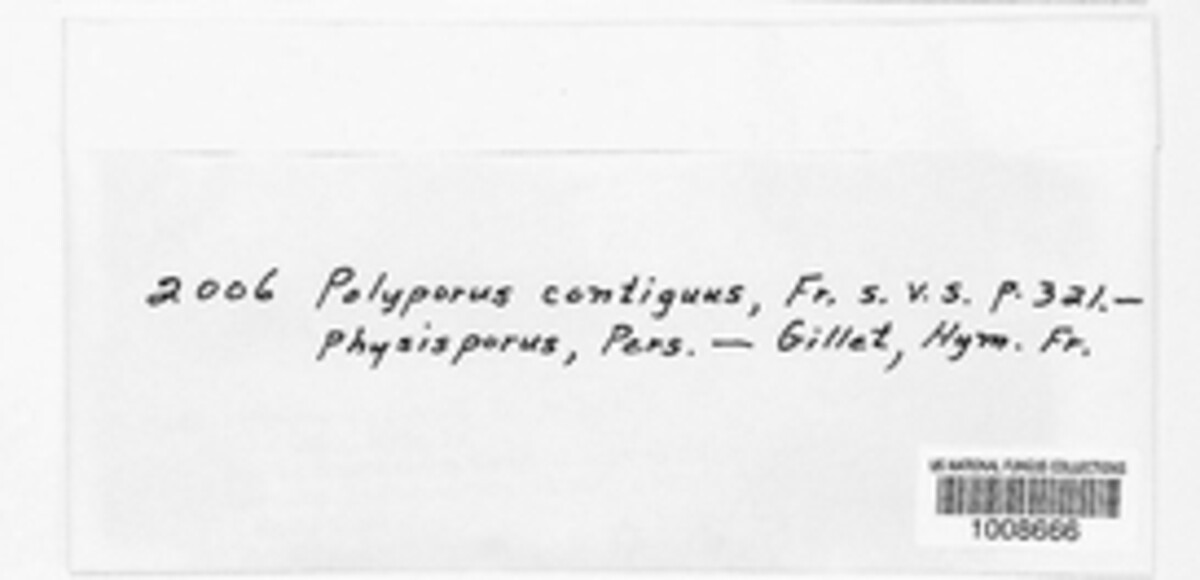 2006 Polyporus contiguus, Fr. S. V. S. p. 321. —
Physisporus, Pers. — Gillet, Hym. Fr.
US NATIONAL FUNGUS COLLECTIONS
1008666